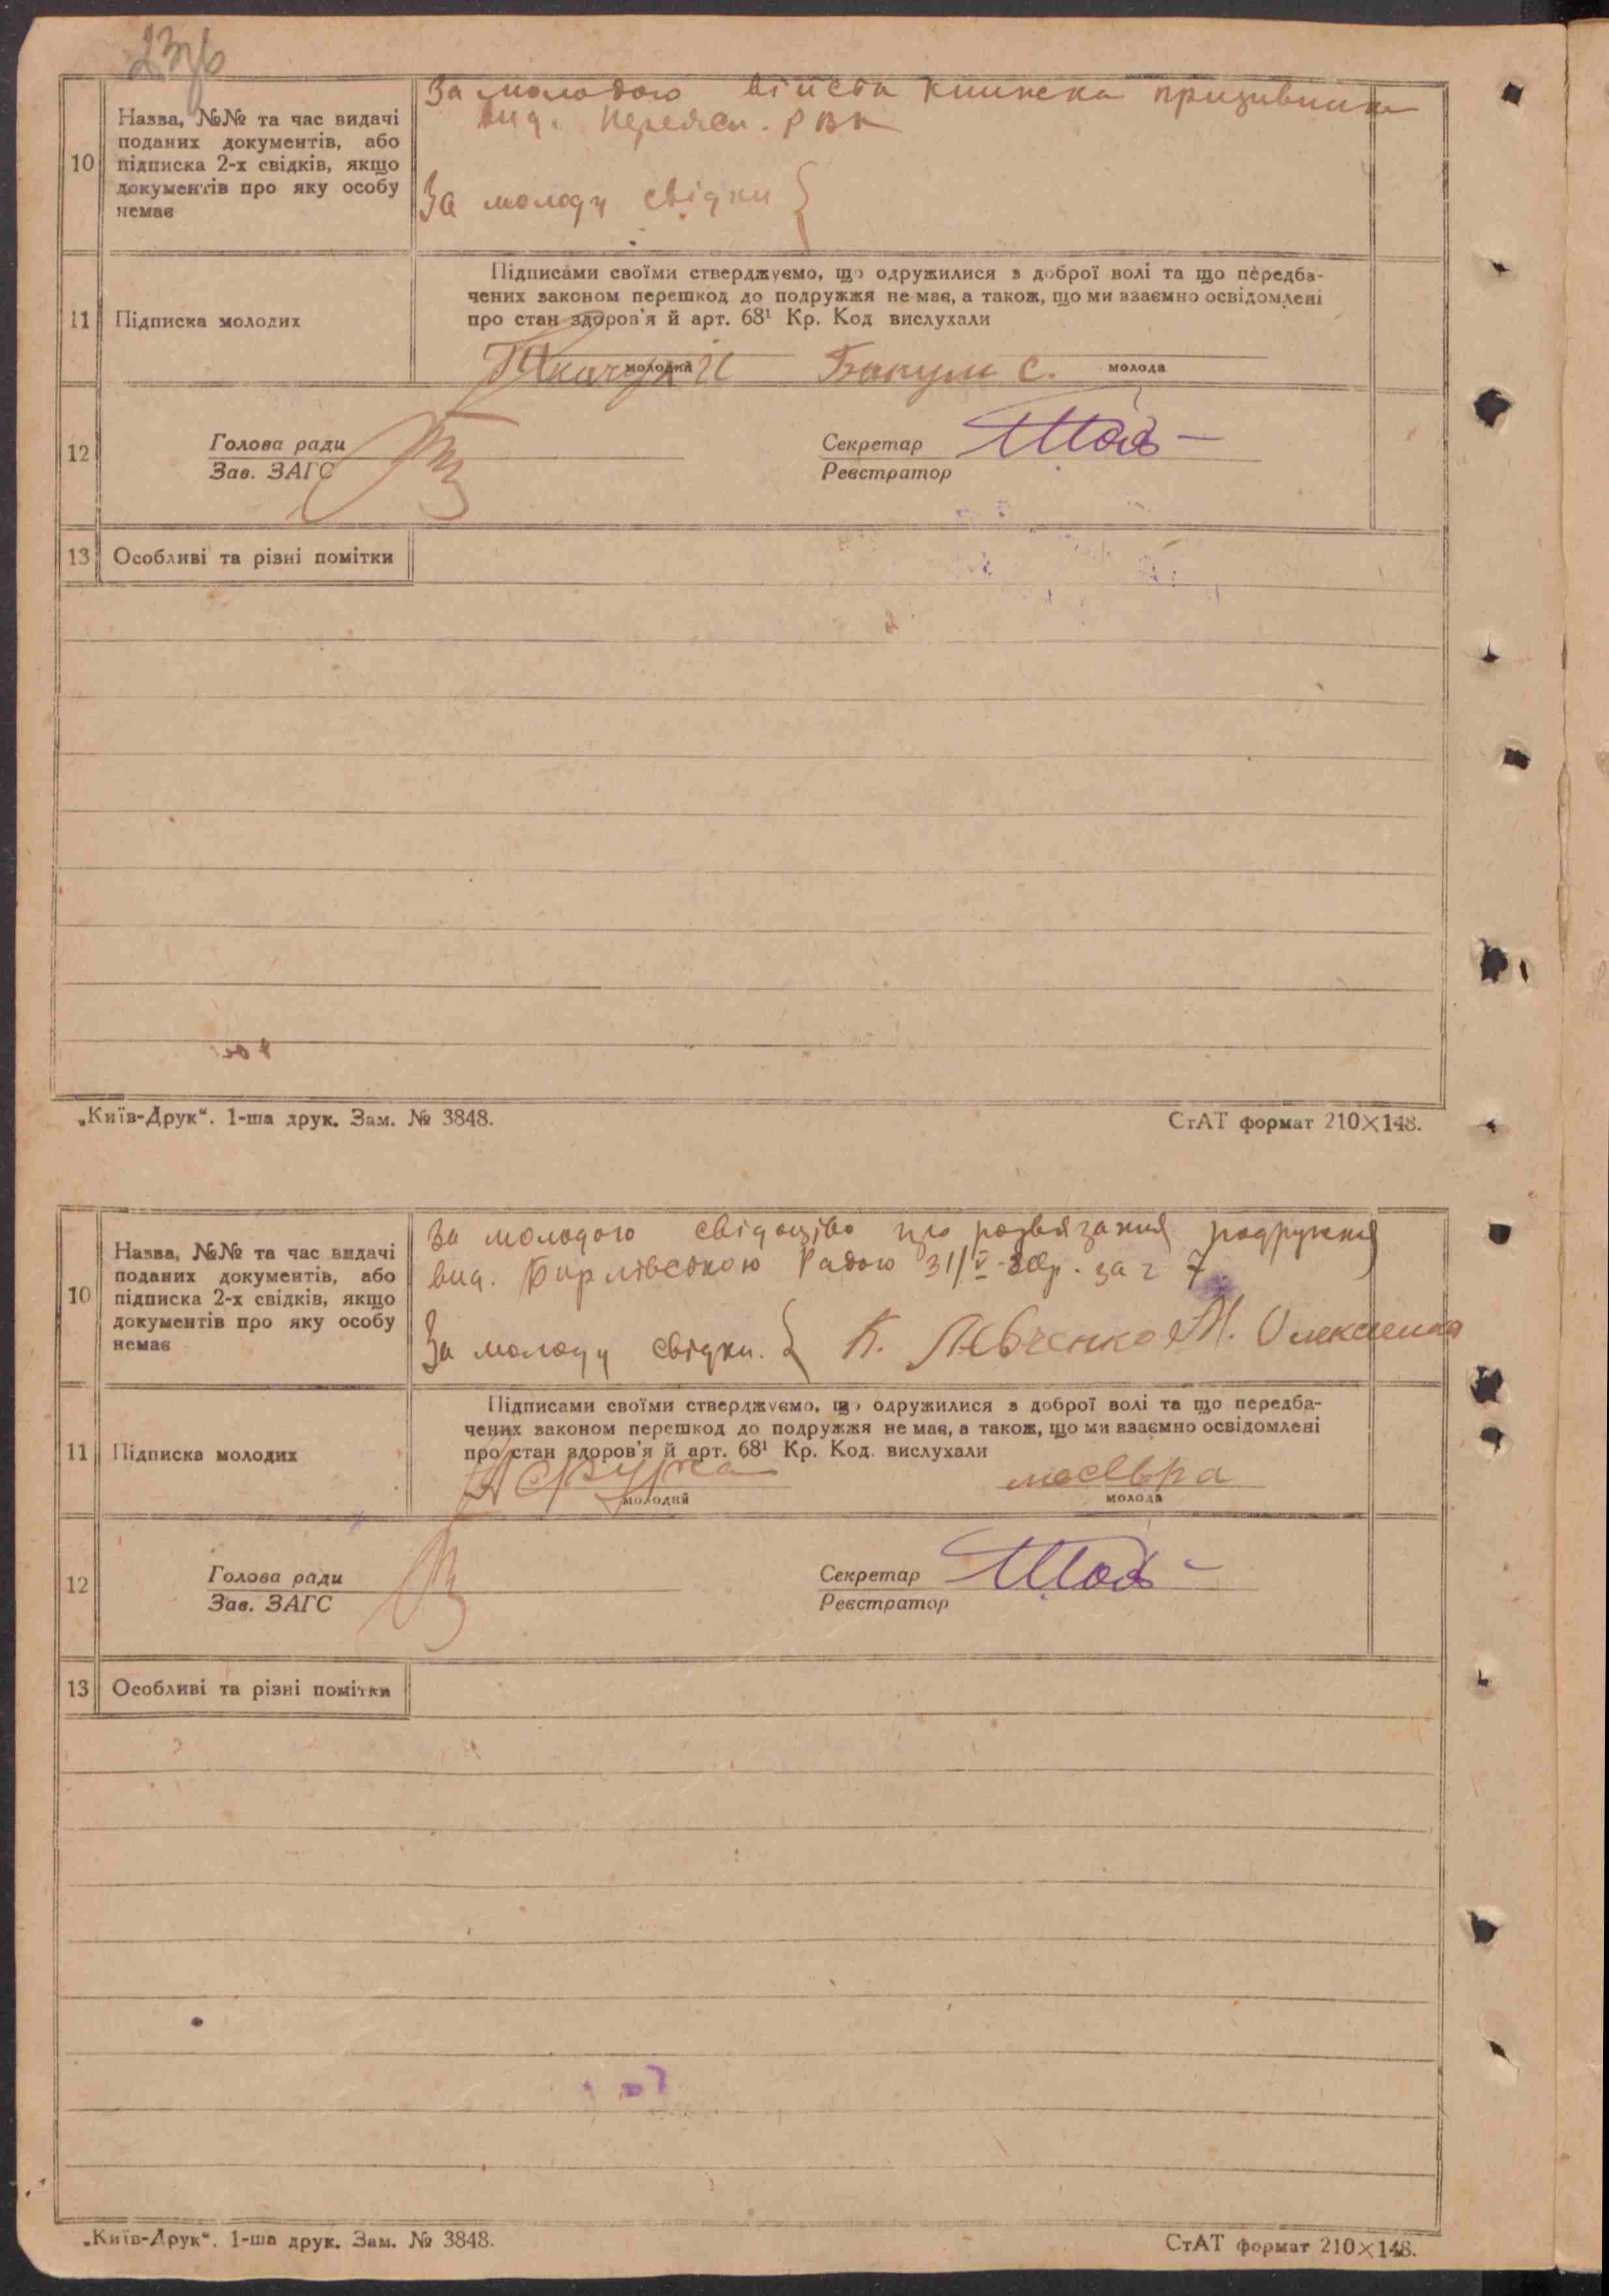 10 Назва, №№ та час видачі
поданих документів, або
підписка 2-х свідків, якщо
документів про яку особу
немає
За молодого військ книжка призивника
вид. Переясл. РВК
За молоду свідки {
11 Підписка молодих
Підписами своїми стверджуємо, що одружилися з доброї волі та що передба-
чених законом перешкод до подружжя не має, а також, що ми взаємно освідомлені
про стан здоров'я й арт. 68¹ Кр. Код вислухали
С.
молодий молода
12 Голова ради Секретар
Зав. ЗАГС Реєстратор
13 Особливі та різні помітки
„Київ-Друк“. 1-ша друк. Зам. № 3848. СтАТ формат 210×148.
10 Назва, №№ та час видачі
поданих документів, або
підписка 2-х свідків, якщо
документів про яку особу
немає
За молодого свідоцтво про розвязання подружжя
вид. Бирлівською Радою 31/V за 7
За молоду свідки. { К. Левченко
11 Підписка молодих
Підписами своїми стверджуємо, що одружилися з доброї волі та що передба-
чених законом перешкод до подружжя не має, а також, що ми взаємно освідомлені
про стан здоров'я й арт. 68¹ Кр. Код. вислухали
молодий молода
12 Голова ради Секретар
Зав. ЗАГС Реєстратор
13 Особливі та різні помітки
„Київ-Друк“. 1-ша друк. Зам. № 3848. СтАТ формат 210×148.